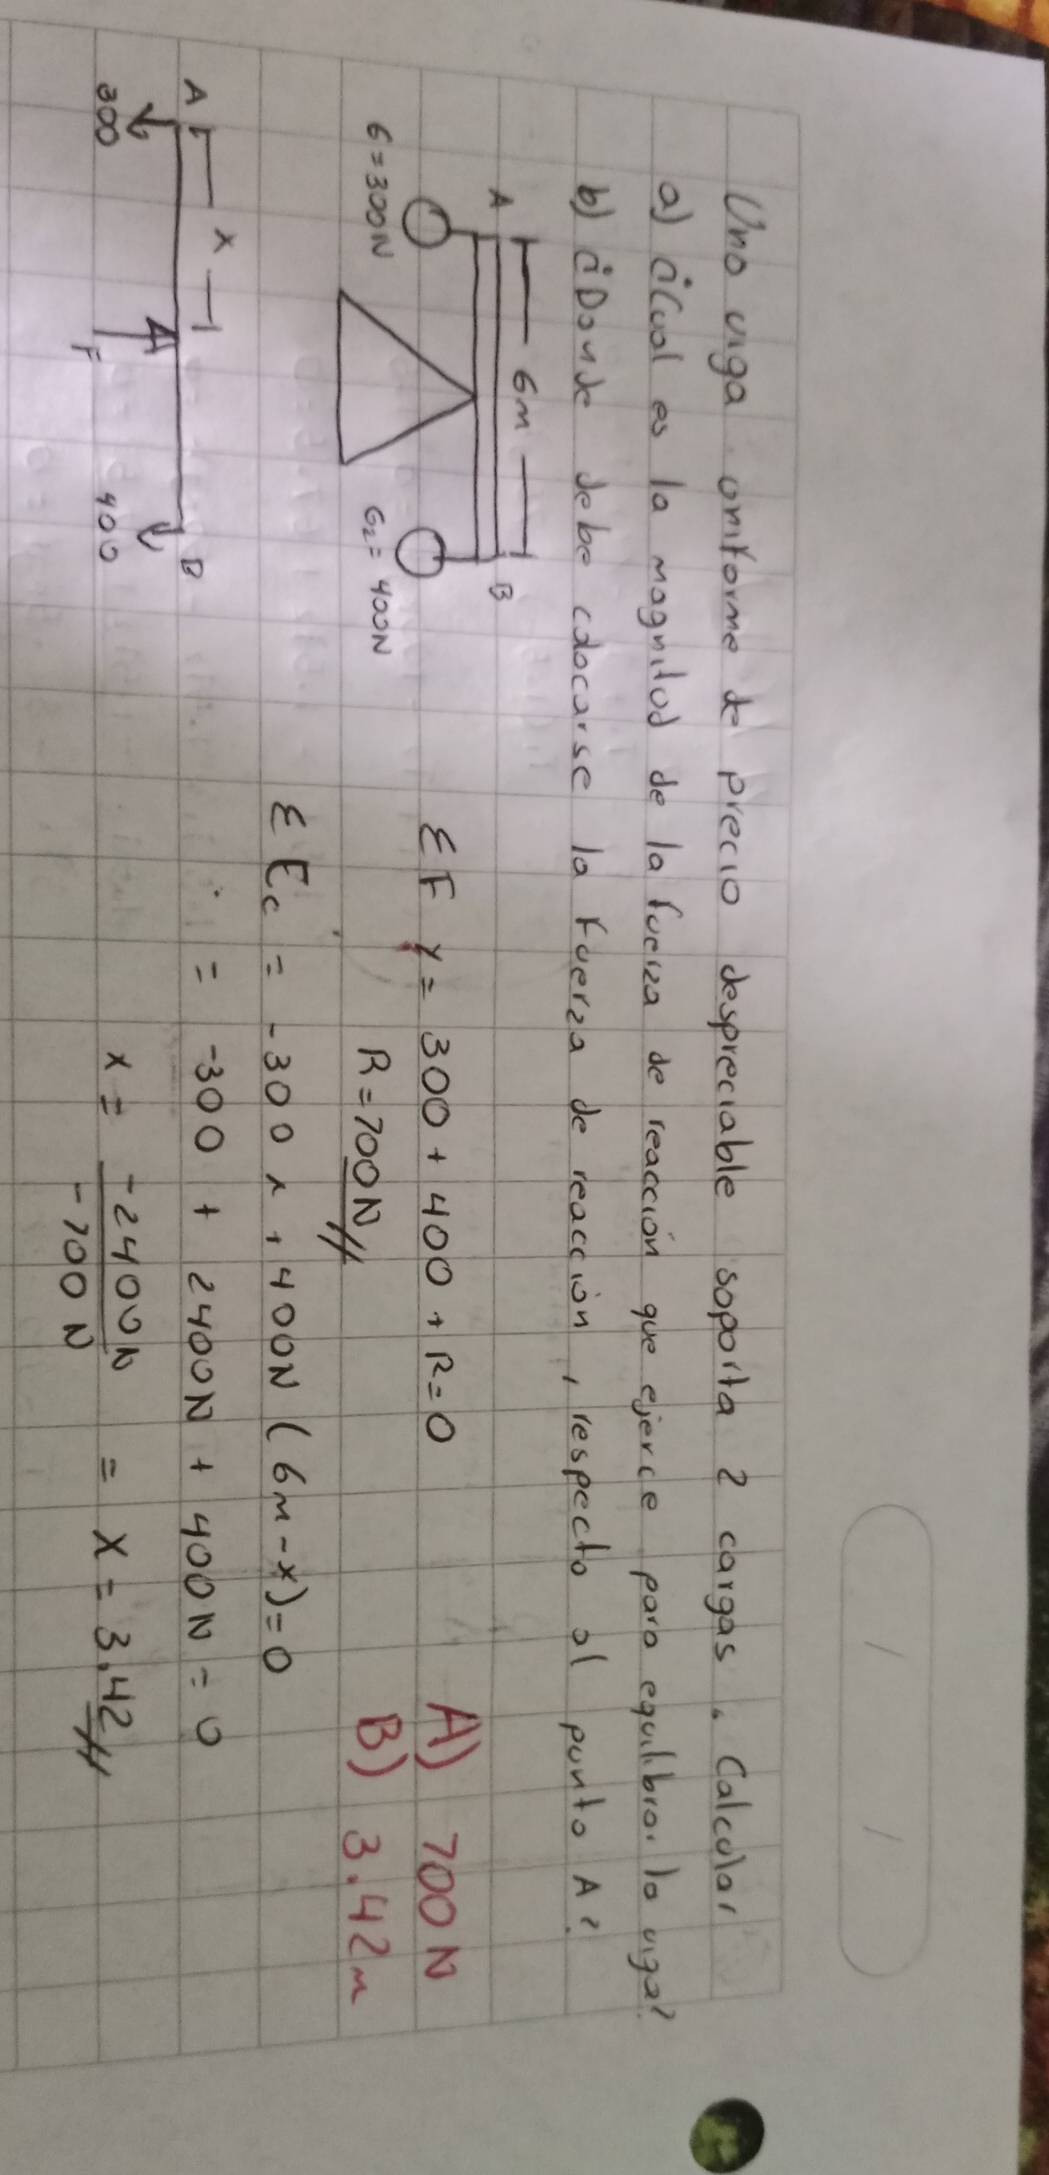 Una viga uniforme de precio despreciable soporta 2 cargas. Calcular
a) ¿Cual es la magnitud de la fuerza de reacción que ejerce para equilibrar la viga?
b) ¿Donde debe colocarse la fuerza de reacción, respecto al punto A?
6m
A
B
G=300N
G2= 400N
ΣFY= 300+400+R=0
R=700N
A) 700N
B) 3.42m
ΣEc = -300x+400N(6m-x)=0
= -300 + 2400N + 400N = 0
x= -2400N
-700N
= X= 3.42
x
A
B
300
F
400